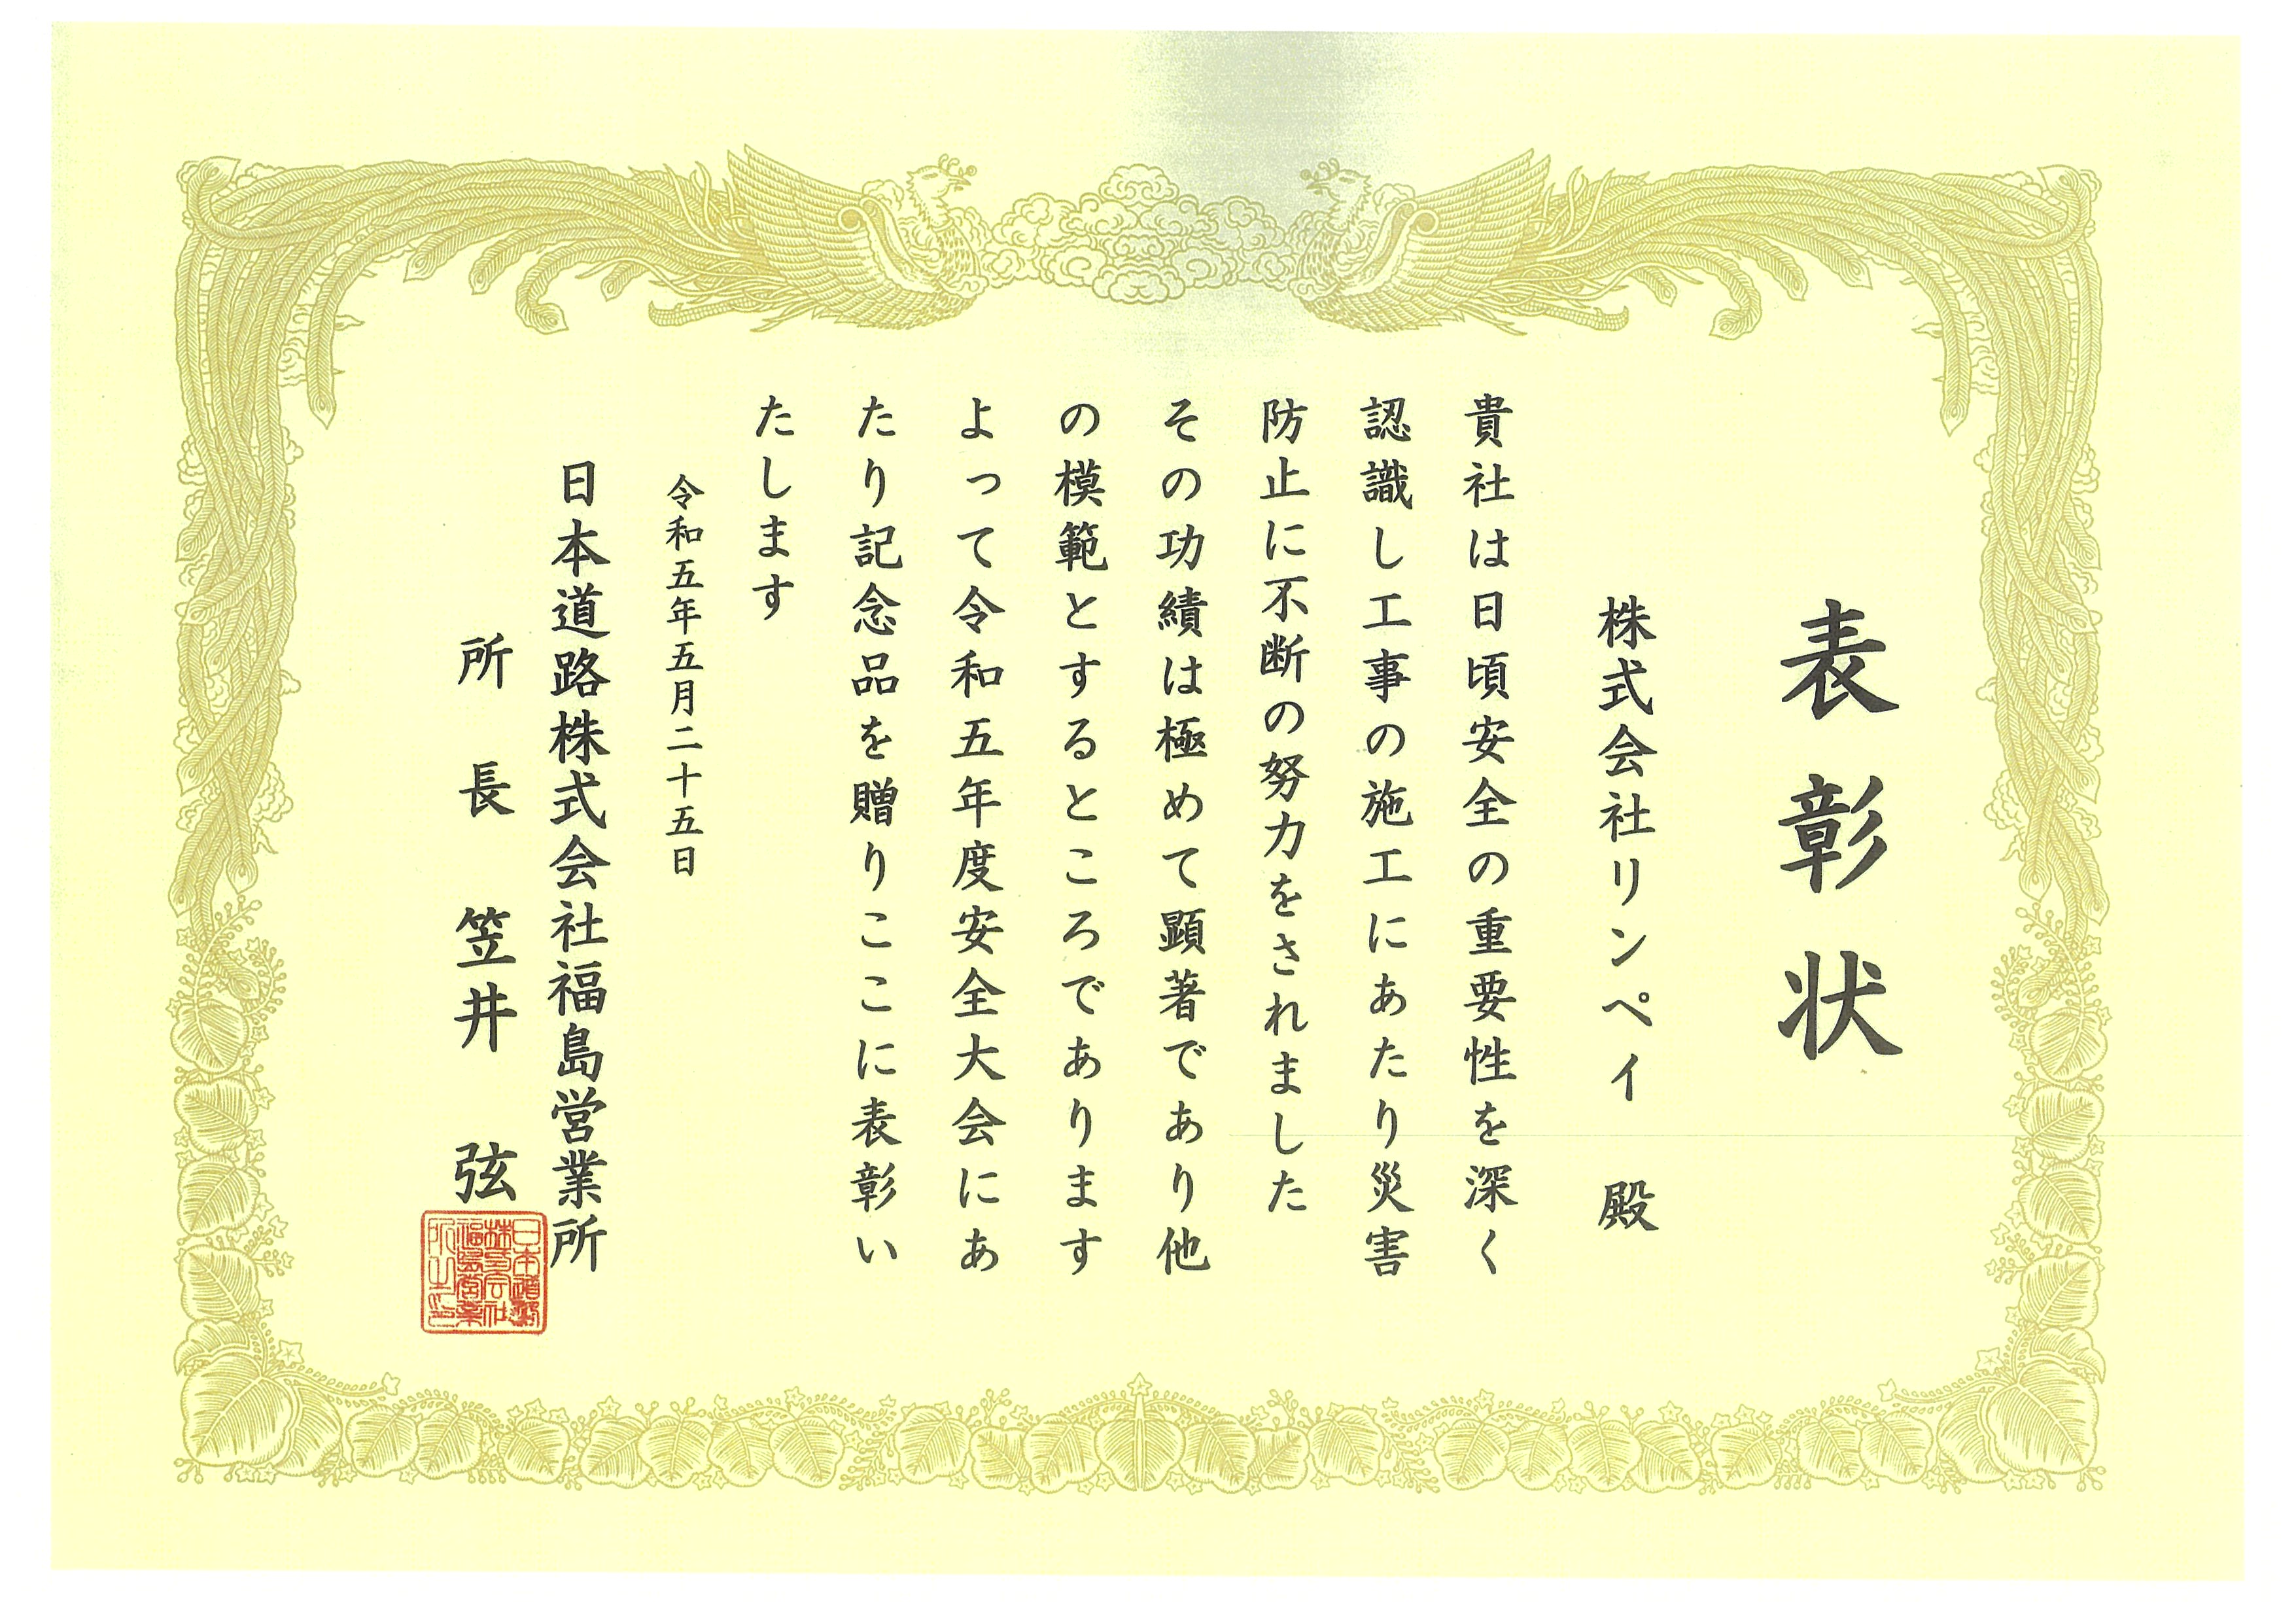 表彰状
株式会社リンペイ 殿
貴社は日頃安全の重要性を深く
認識し工事の施工にあたり災害
防止に不断の努力をされました
その功績は極めて顕著であり他
の模範とするところであります
よって令和五年度安全大会にあ
たり記念品を贈りここに表彰い
たします
令和五年五月二十五日
日本道路株式会社福島営業所
所長 笠井 弦
日本道路
株式会社
福島営業
所之印